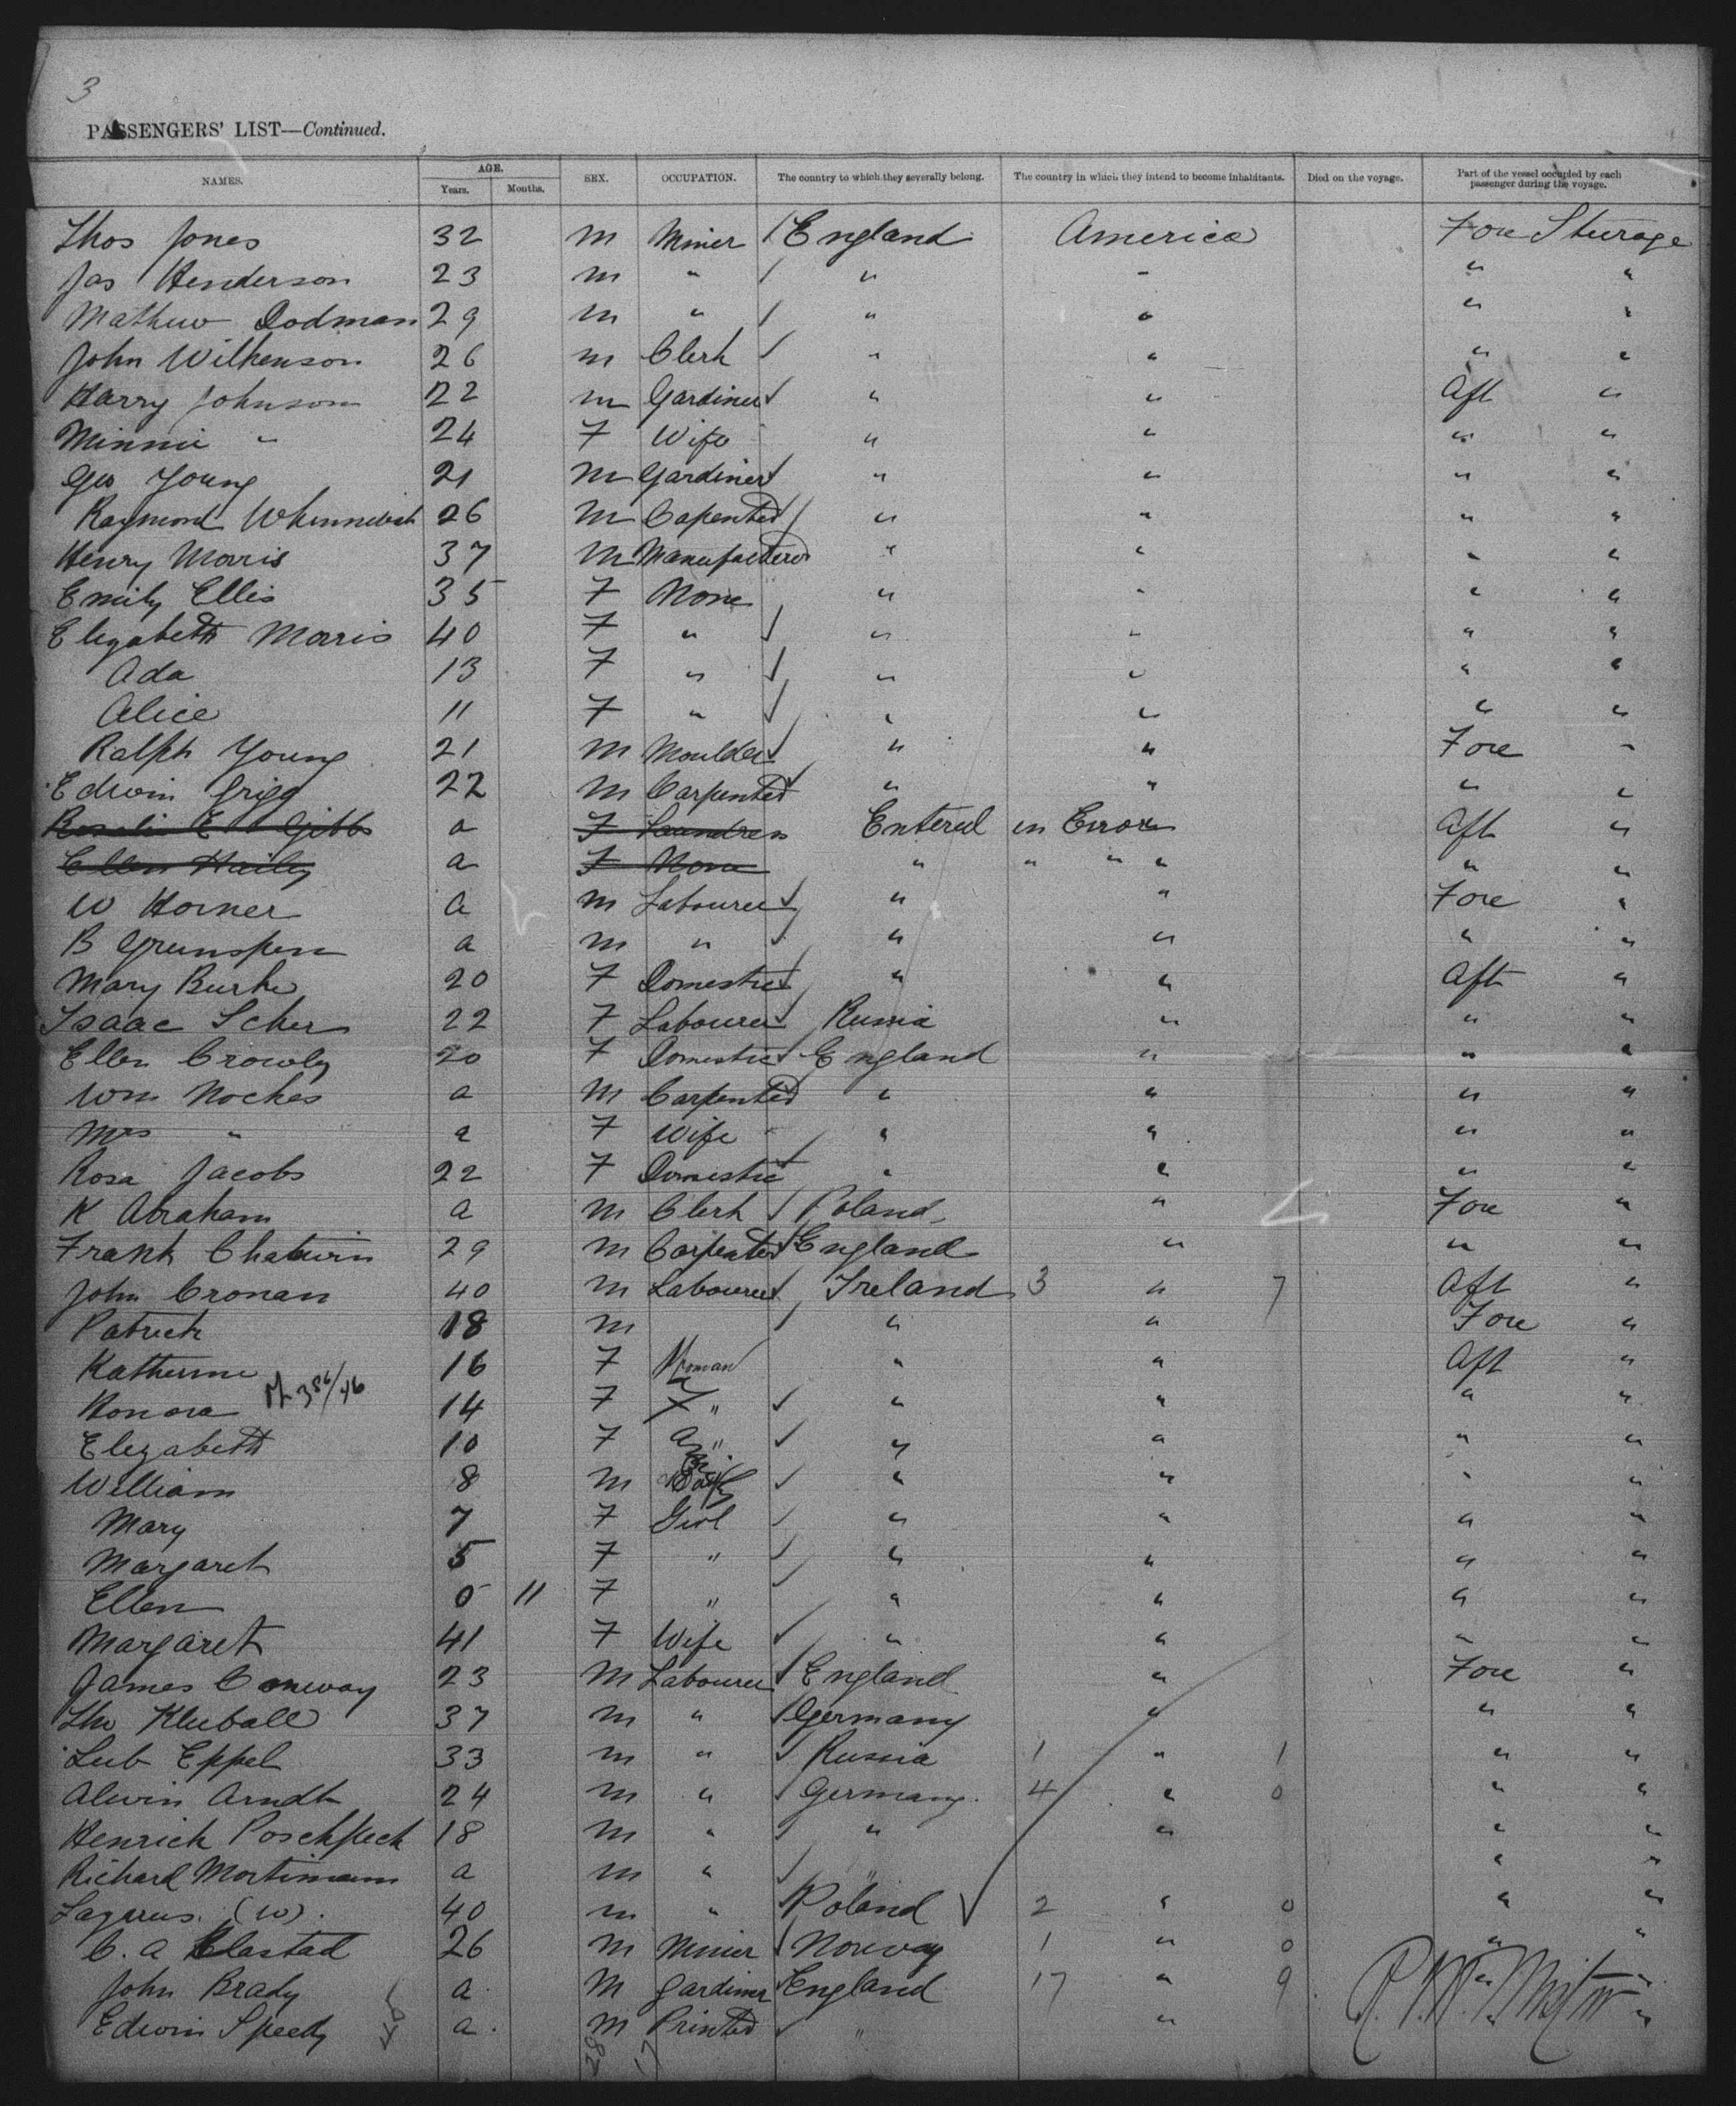 3
PASSENGERS' LIST—Continued.
NAMES. AGE. Years. Months. SEX. OCCUPATION. The country to which they severally belong. The country in which they intend to become inhabitants. Died on the voyage. Part of the vessel occupied by each passenger during the voyage.
Thos Jones 32 M Miner England America Fore Sturage
Jas Henderson 23 M " " " " "
Mathew Dodman 29 M " " " " "
John Wilkenson 26 M Clerk " " " "
Harry Johnson 22 M Gardiner " " Aft "
Minnie " 24 F Wife " " " "
Geo Young 21 M Gardiner " " " "
Raymond 26 M Capenter " " " "
Henry Morris 37 M Manufacterer " " " "
Emily Ellis 35 F None " " " "
Elizabeth Morris 40 F " " " " "
Ada 13 F " " " " "
Alice 11 F " " " " "
Ralph Young 21 M Moulder " " Fore "
Edwin Grigg 22 M Carpenter " " " "
Rosalie E Gibbs a F Laundress Entered in Error Aft "
Ellen Hailey a F None " " " " " "
W Horner a M Labourer " " Fore "
B Grunspen a M " " " " "
Mary Burke 20 F Domestic " " Aft "
Isaac Scher 22 F Labourer Russia " " "
Ellen Crowley 20 F Domestic England " " "
Wm Noches a M Carpenter " " " "
Mrs " a F Wife " " " "
Rosa Jacobs 22 F Domestic " " " "
K Abraham a M Clerk Poland " Fore "
Frank Chatwin 29 M Carpenter England " " "
John Cronan 40 M Labourer Ireland 3 " 7 Aft "
Patrick 18 M " " Fore "
Katherine 16 F Woman " " Aft "
Honora 14 F " " " " "
Elizabeth 10 F " " " " "
William 8 M Boy " " " "
Mary 7 F Girl " " " "
Margaret 5 F " " " " "
Ellen 0 11 F " " " " "
Margaret 41 F Wife " " " "
James Conway 23 M Labourer England " Fore "
Kleeball 37 M " Germany " " "
Leib Eppel 33 M " Russia 1 " 1 " "
Alwin Arndt 24 M " Germany 4 " 0 " "
Henrich Poschpeck 18 M " " " " "
Richard Mortimann a M " " " "
Lazurus. (W). 40 M " Poland 2 " 0 " "
C. A Klastad 26 M Miner Norway 1 " 0 " "
John Brady a M Gardiner England 17 " 9 " "
Edwin Speedy a M Printer " " " "
28 17